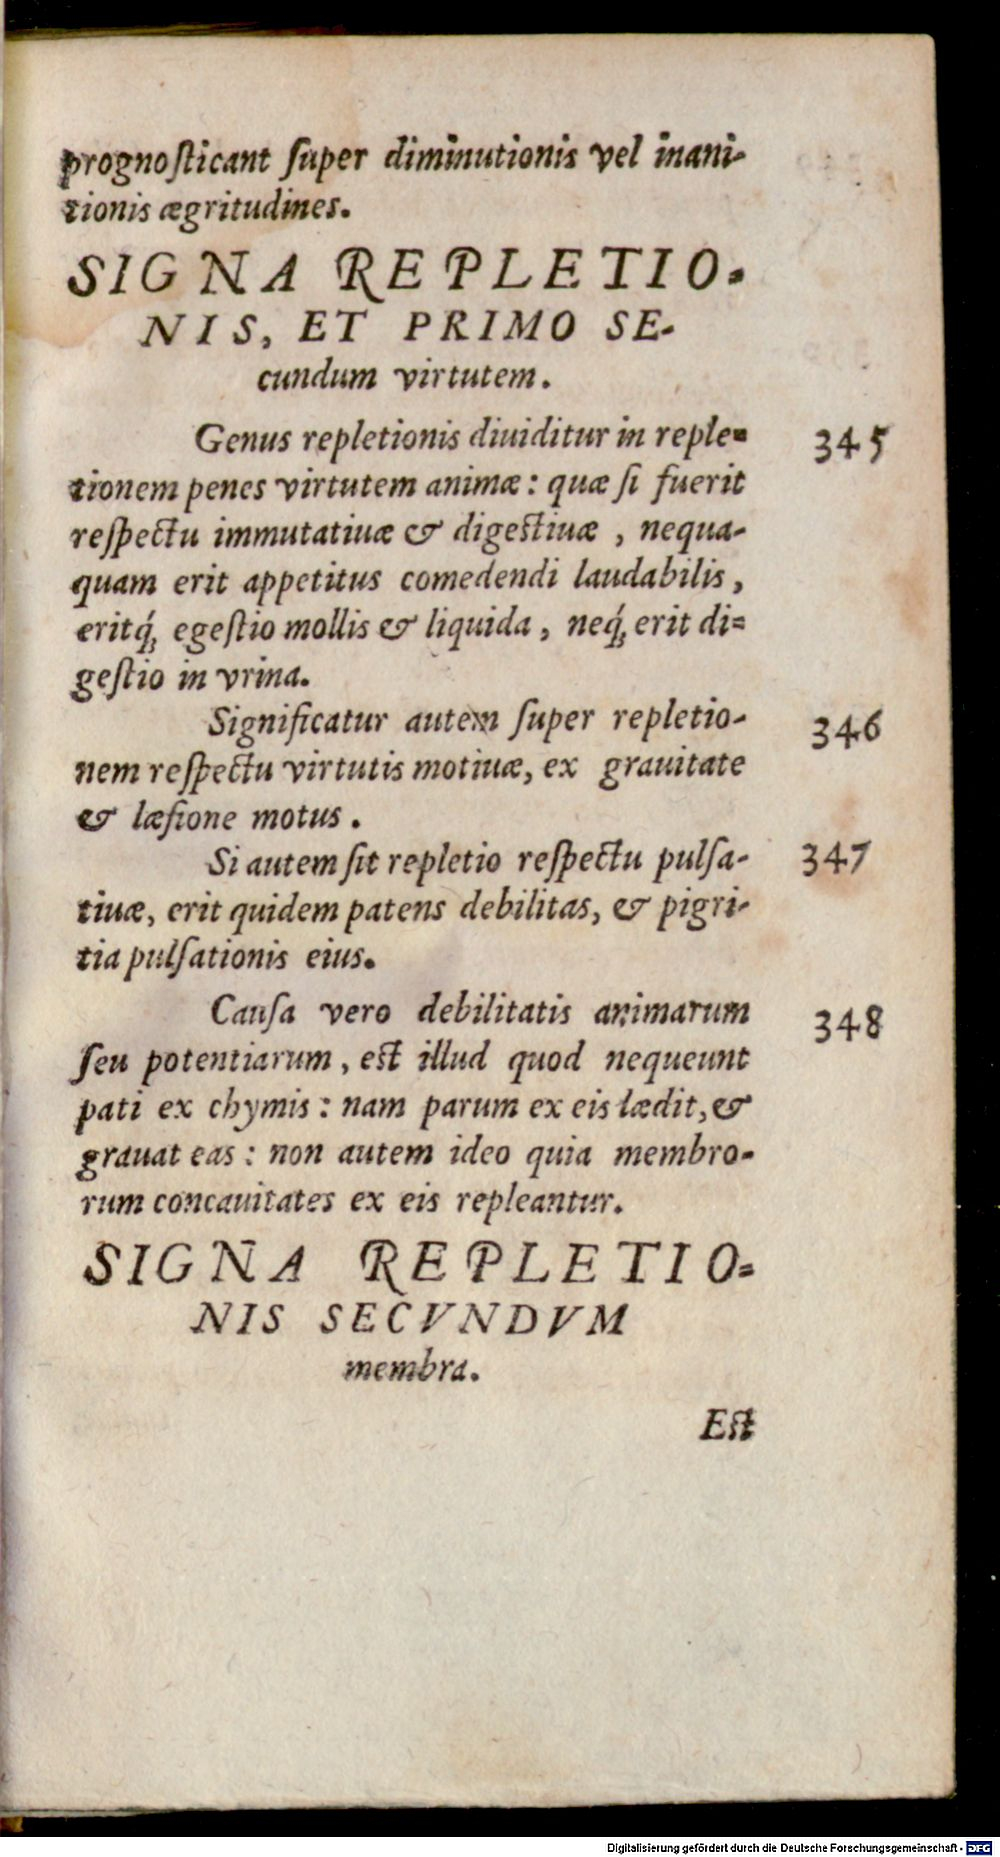 prognoſticant ſuper diminutionis vel inani-
tionis ægritudines.
SIGNA REPLETIO-
NIS, ET PRIMO SE-
cundum virtutem.
Genus repletionis diuiditur in reple-
345
tionem penes virtutem animæ: quæ ſi fuerit
reſpectu immutatiuæ & digeſtiuæ, nequa-
quam erit appetitus comedendi laudabilis,
eritq́ꝫ egeſtio mollis & liquida, neq́ꝫ erit di-
geſtio in vrina.
Significatur autem ſuper repletio-
346
nem reſpectu virtutis motiuæ, ex grauitate
& læſione motus.
Si autem ſit repletio reſpectu pulſa-
347
tiuæ, erit quidem patens debilitas, & pigri-
tia pulſationis eius.
Cauſa vero debilitatis animarum
348
ſeu potentiarum, eſt illud quod nequeunt
pati ex chymis: nam parum ex eis lædit, &
grauat eas: non autem ideo quia membro-
rum concauitates ex eis repleantur.
SIGNA REPLETIO-
NIS SECVNDVM
membra.
Eſt
Digitalisierung gefördert durch die Deutsche Forschungsgemeinschaft - DFG